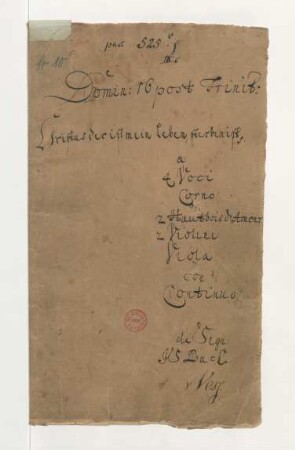 Domin: 16 post Trinit:
Christus der ist mein Leben, sterben ist
a
4 Voci
Corno
2 Hautbois d'Amour
2 Violini
Viola
con
Continuo
di Sign
JS Bach